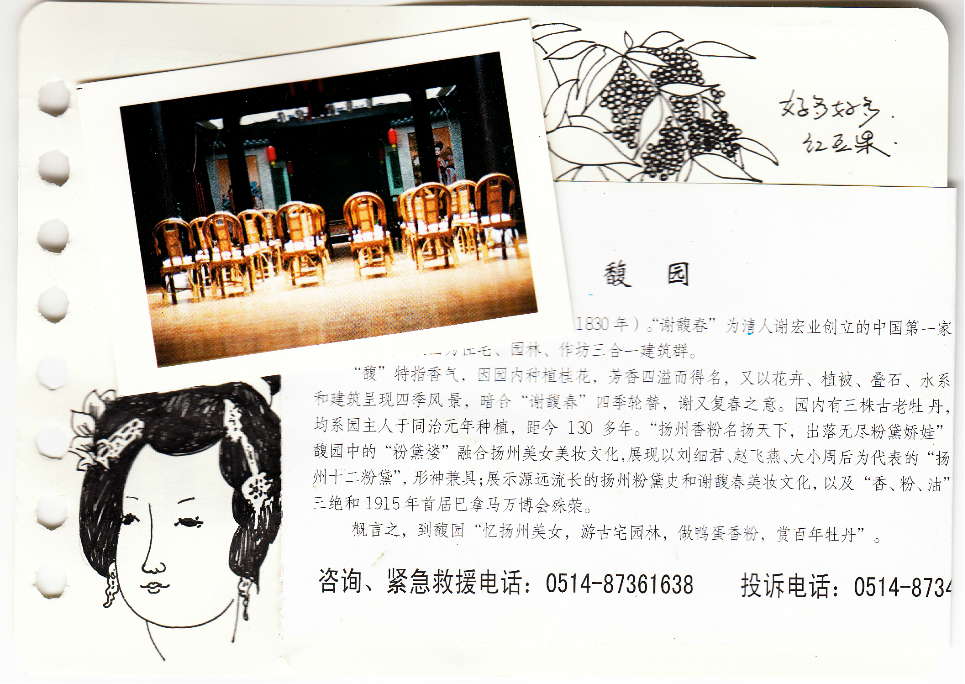 好多好多.
红豆果.
馥 园
1830年）。“谢馥春”为清人谢宏业创立的中国第一家
住宅、园林、作坊三合一建筑群。
“馥”特指香气，因园内种植桂花，芳香四溢而得名，又以花卉、植被、叠石、水系
和建筑呈现四季风景，暗合“谢馥春”四季轮替，谢又复春之意。园内有三株古老牡丹，
均系园主人于同治元年种植，距今 130 多年。“扬州香粉名扬天下，出落无尽粉黛娇娃”
馥园中的“粉黛楼”融合扬州美女美妆文化,展现以刘细君、赵飞燕、大小周后为代表的“扬
州十二粉黛”，形神兼具;展示源远流长的扬州粉黛史和谢馥春美妆文化，以及“香、粉、油”
三绝和1915年首届巴拿马万博会殊荣。
概言之，到馥园“忆扬州美女，游古宅园林，做鸭蛋香粉，赏百年牡丹”。
咨询、紧急救援电话：0514-87361638 投诉电话：0514-8734